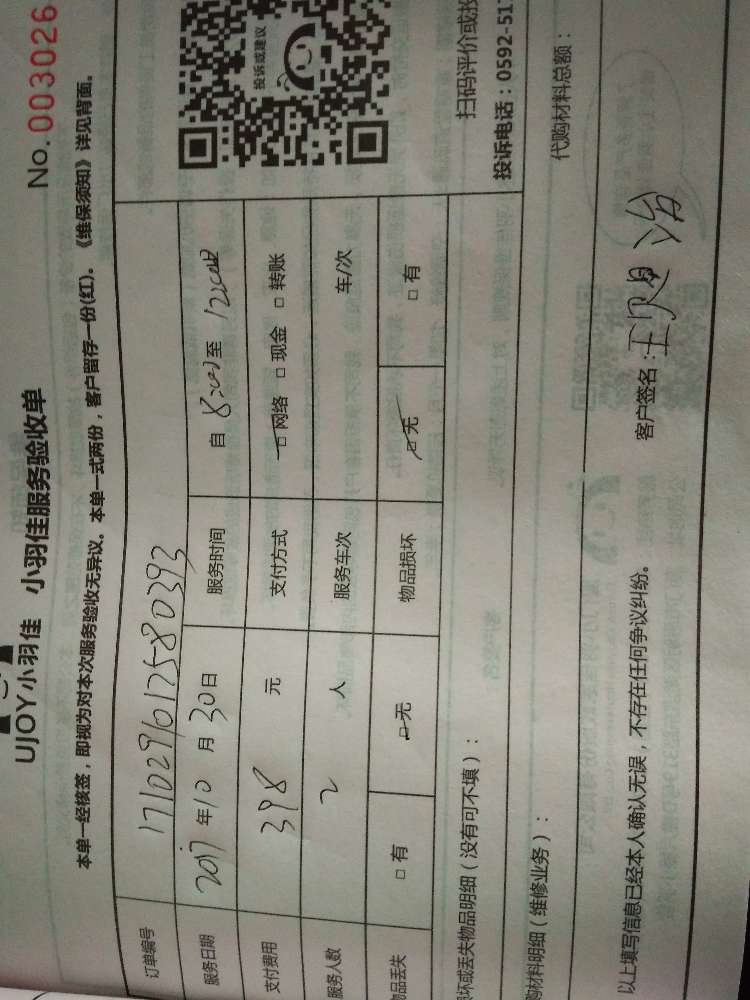 No.003026
UJOY小羽佳 小羽佳服务验收单
本单一经核签，即视为对本次服务验收无异议。本单一式两份，客户留存一份(红)。《维保须知》详见背面。
订单编号 1710291012580393
服务日期 2017年10月30日 服务时间 自 8:00 至 12:00
支付费用 398 元 支付方式 □网络 □现金 □转账
服务人数 2 人 服务车次 车/次
品丢失 □有 □无 物品损坏 □无 □有
投诉或建议
扫码评价或投
投诉电话：0592-517
坏或丢失物品明细（没有可不填）：
购材料明细（维修业务）： 代购材料总额：
以上填写信息已经本人确认无误，不存在任何争议纠纷。 客户签名：